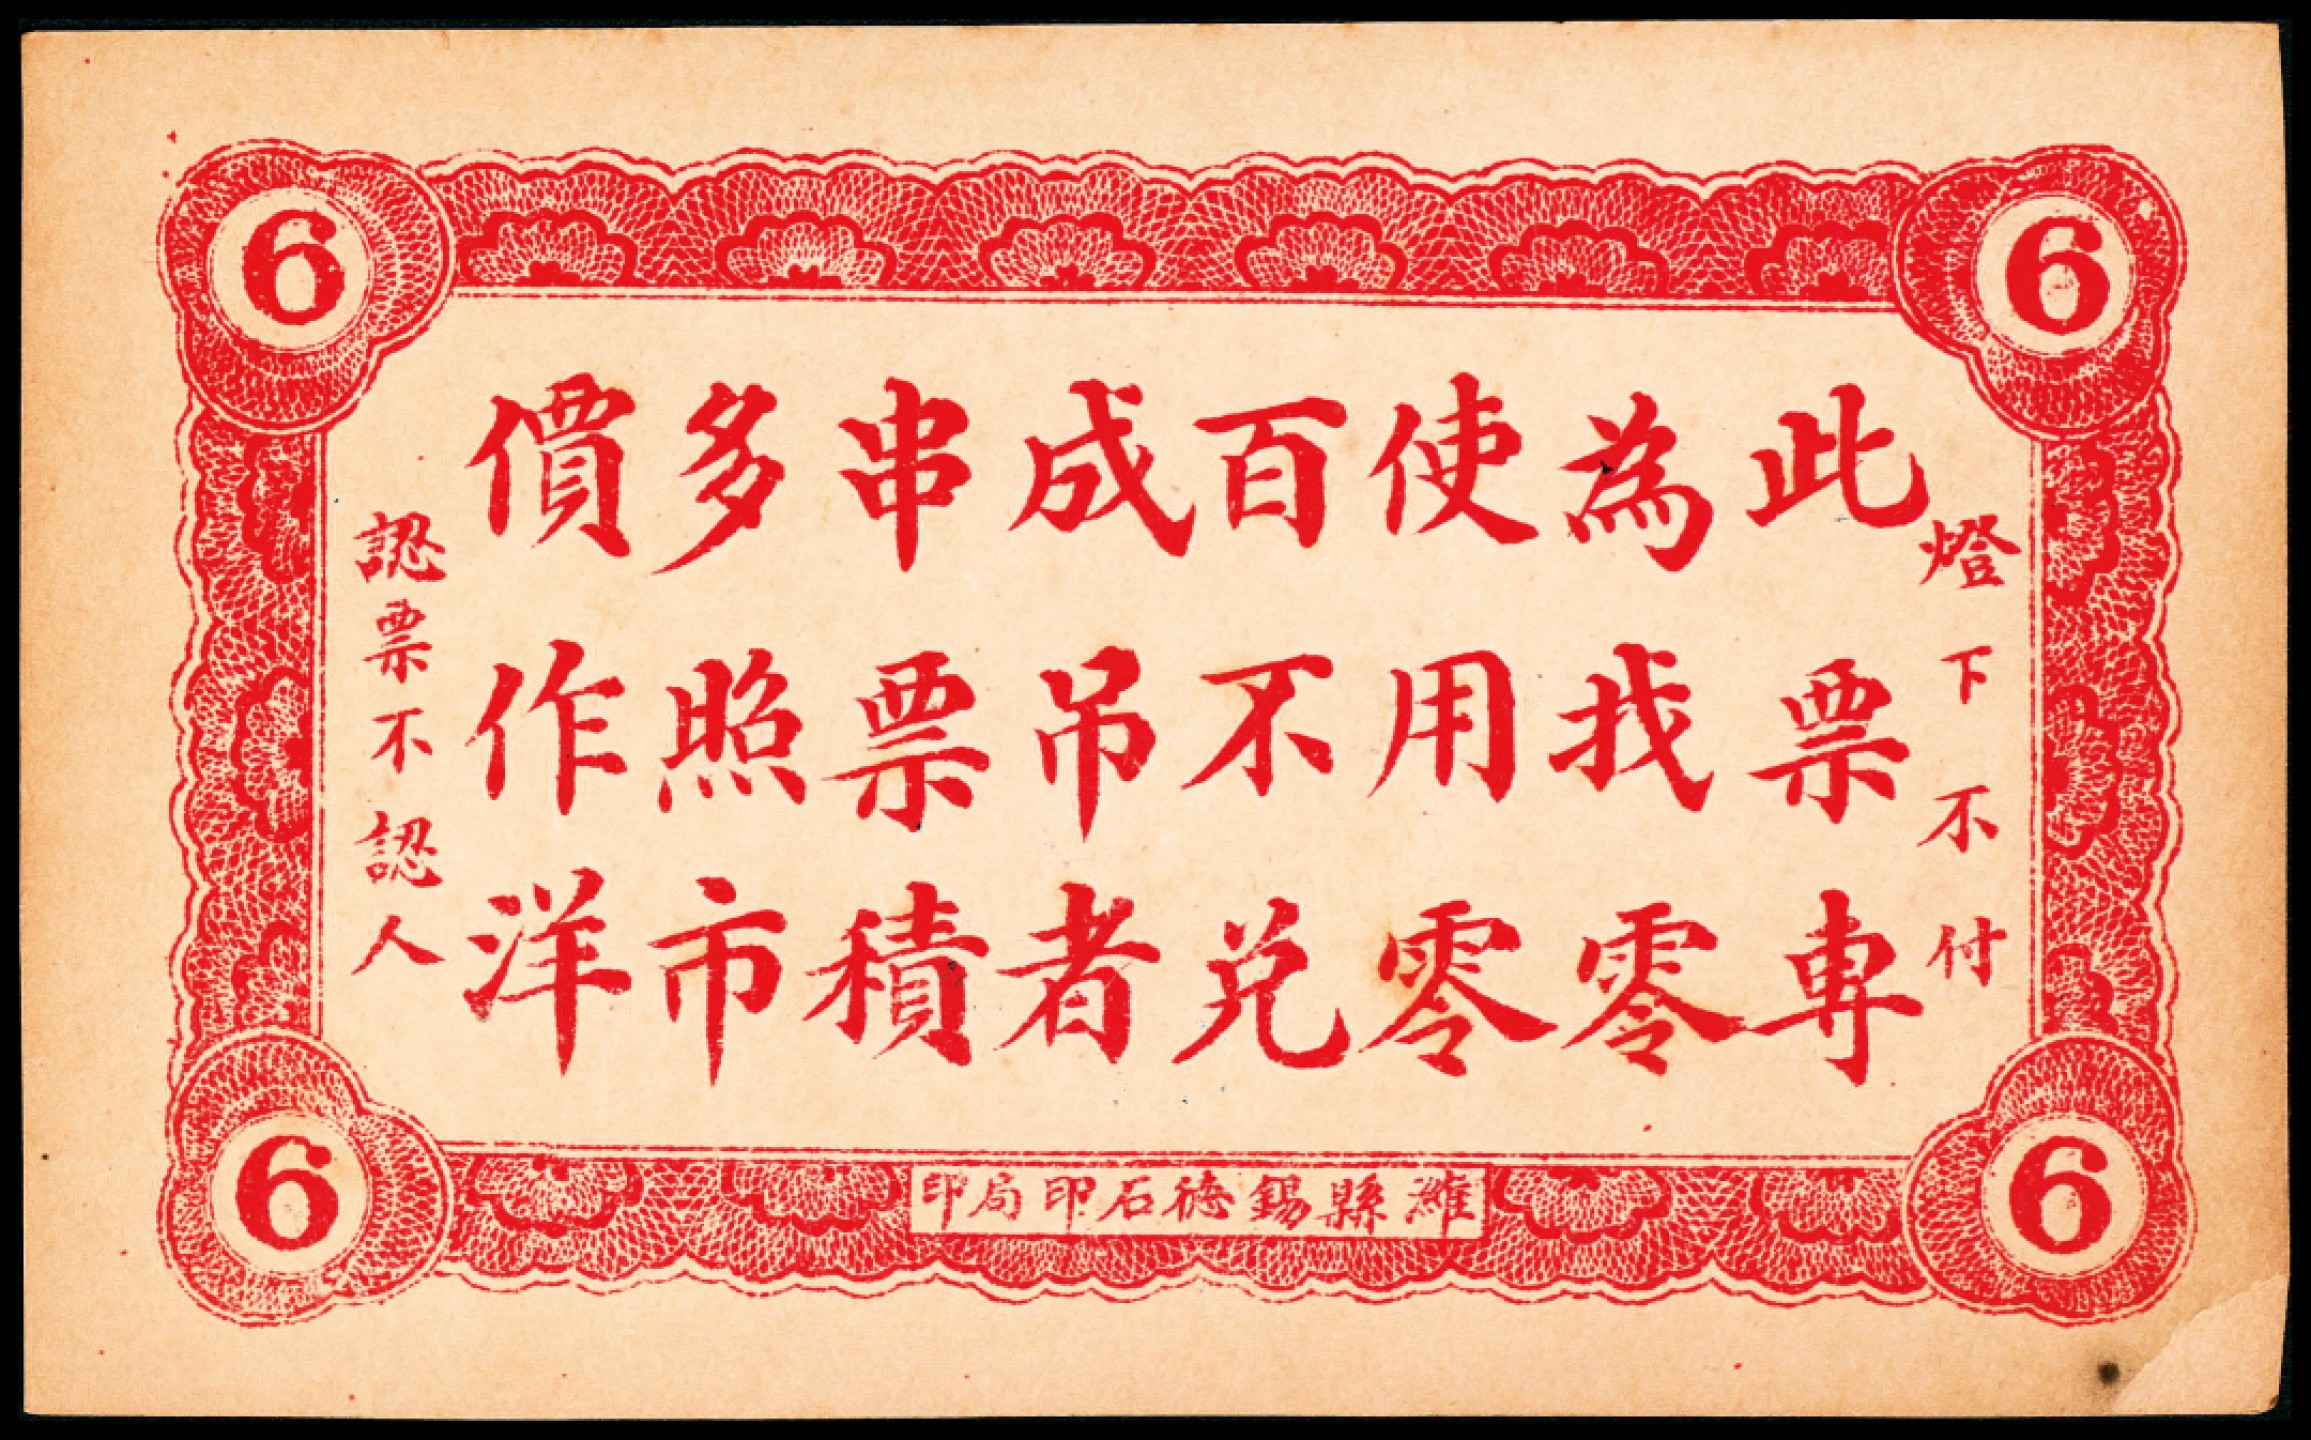 6
6
燈下不付
此票專
為找零
使用零
百不兑
成吊者
串票積
多照市
價作洋
認票不認人
6
6
濰縣錫德石印局印